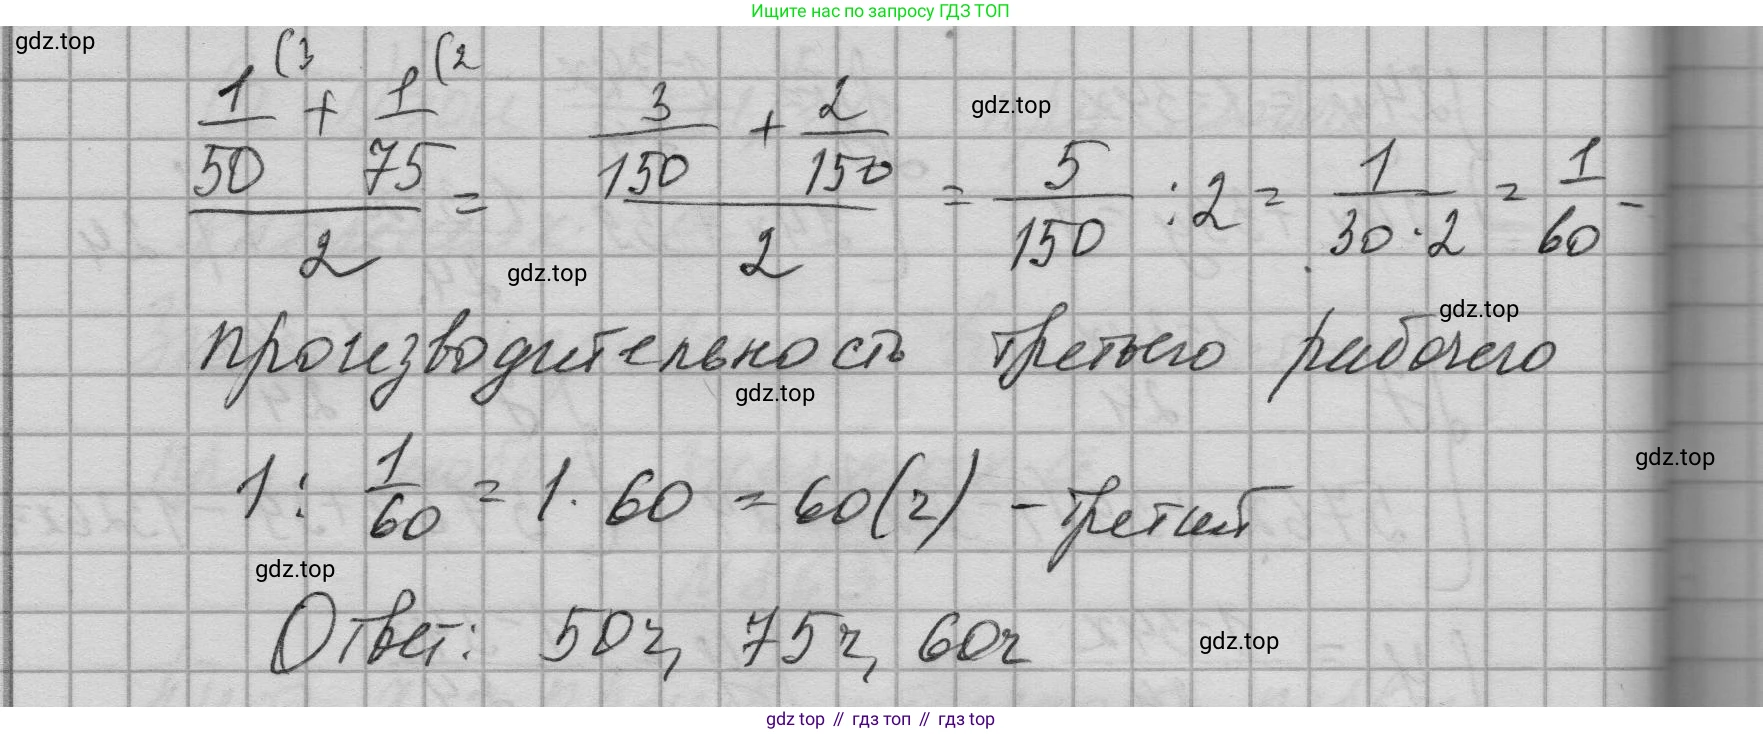 Ищите нас по запросу ГДЗ ТОП
gdz.top
1/50 (3 + 1/75 (2 / 2 = 3/150 + 2/150 / 2 = 5/150 : 2 = 1/30·2 = 1/60 -
gdz.top
gdz.top
gdz.top
производительность третьего рабочего
gdz.top
gdz.top
1 : 1/60 = 1 · 60 = 60 (ч) - третий
gdz.top
Ответ: 50 ч, 75 ч, 60 ч
gdz.top
gdz top // гдз топ // gdz top